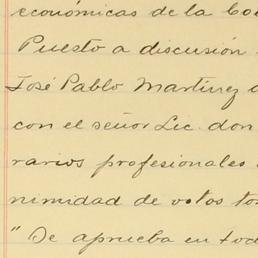 económicas de la
Puesto a discusión
José Pablo Martínez
con el señor Lic. don
rarios profesionales
nimidad de votos
"Se aprueba en